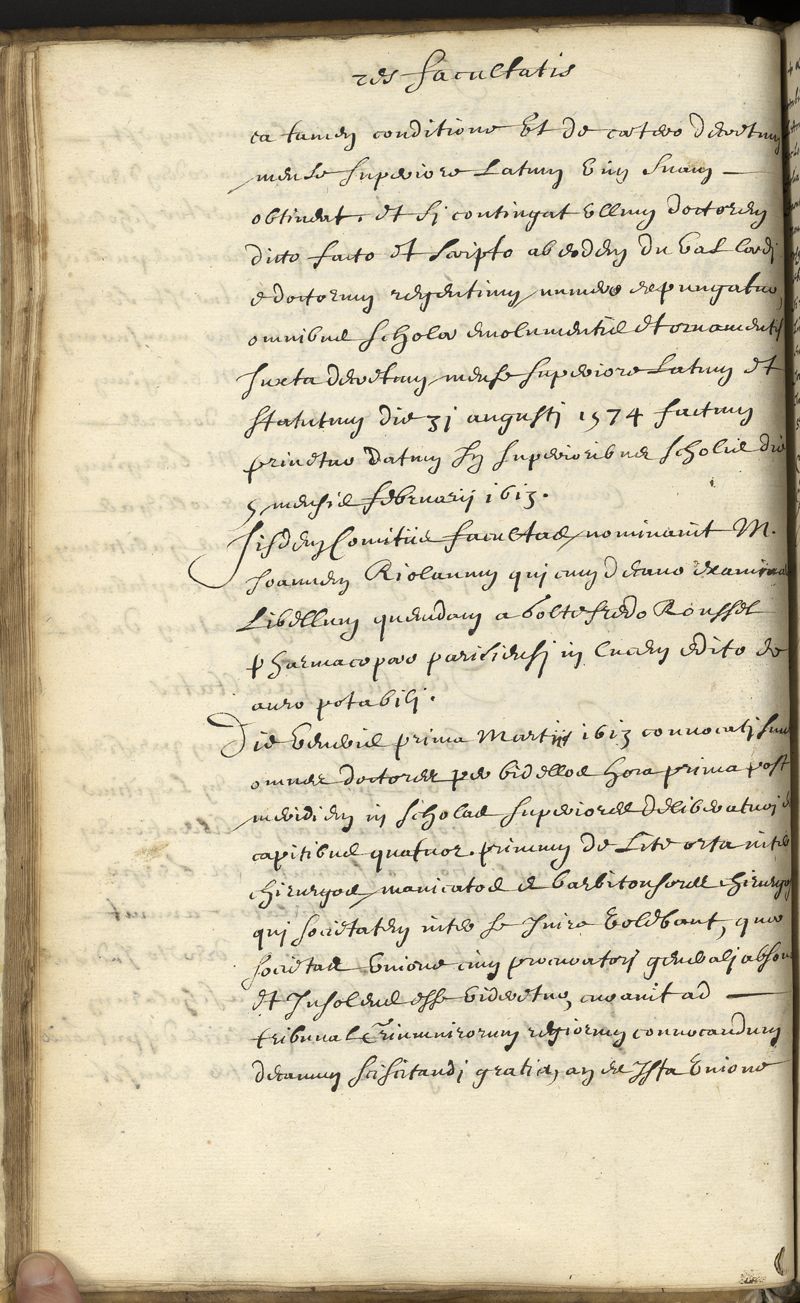 res facultatis
ea tamen conditione Et de cætero decretum
mense superiore Latum Vim suam
obtineat, et si contingat Vllum doctorem
dicto facto et scripto ab eodem du Val lædi
e doctorum regentium numero expungatur,
omnibus scholæ emolumentis et ornamentis
Juxta decretum mense superiore Latum et
statutum die 31 augusti 1574 factum
privetur datum In superioribus scholis die
5 mensis februarij 1613.
Iisdem Comitiis facultas nominauit M.
Joannem Riolanum qui cum decano
Libellum quendam a Roussel
pharmacopæo parisiensi in lucem edito de
auro potabili.
Die Veneris prima Martij 1613 convocati sunt
omnes doctores per bidellos hora prima post
meridiem in scholas superiores deliberaturi
capitibus quatuor. primum de Lite orta inter
chirurgos manicatos et barbitonsores
qui societatem inter se Inire Volebant, quæ
societas Vnione cum procuratori generali
et Insolens esse Videretur, curauit ad
tribunal Triumvirorum regiorum convocandum
decanum sciscitandi gratia, an ex Ista Vnione